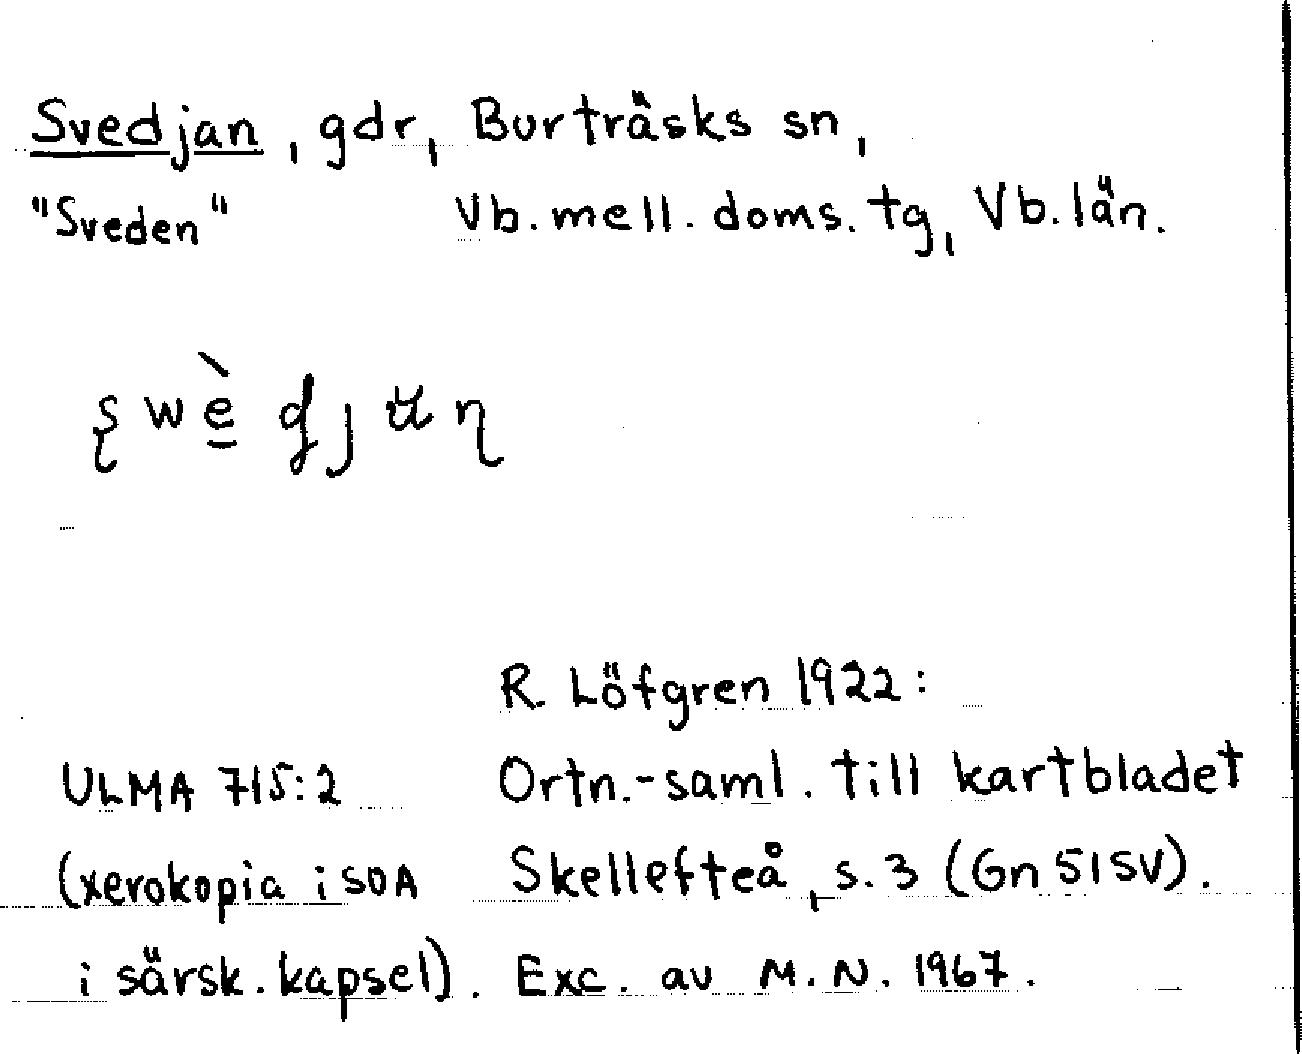 Svedjan, gdr, Burträsks sn,
"Sveden" Vb. mell. doms. tg, Vb. län.
R. Löfgren 1922:
ULMA 715:2 Ortn.-saml. till kartbladet
(xerokopia i SOA Skellefteå, s. 3 (Gn 51 SV).
i särsk. kapsel). Exc. av M. N. 1967.